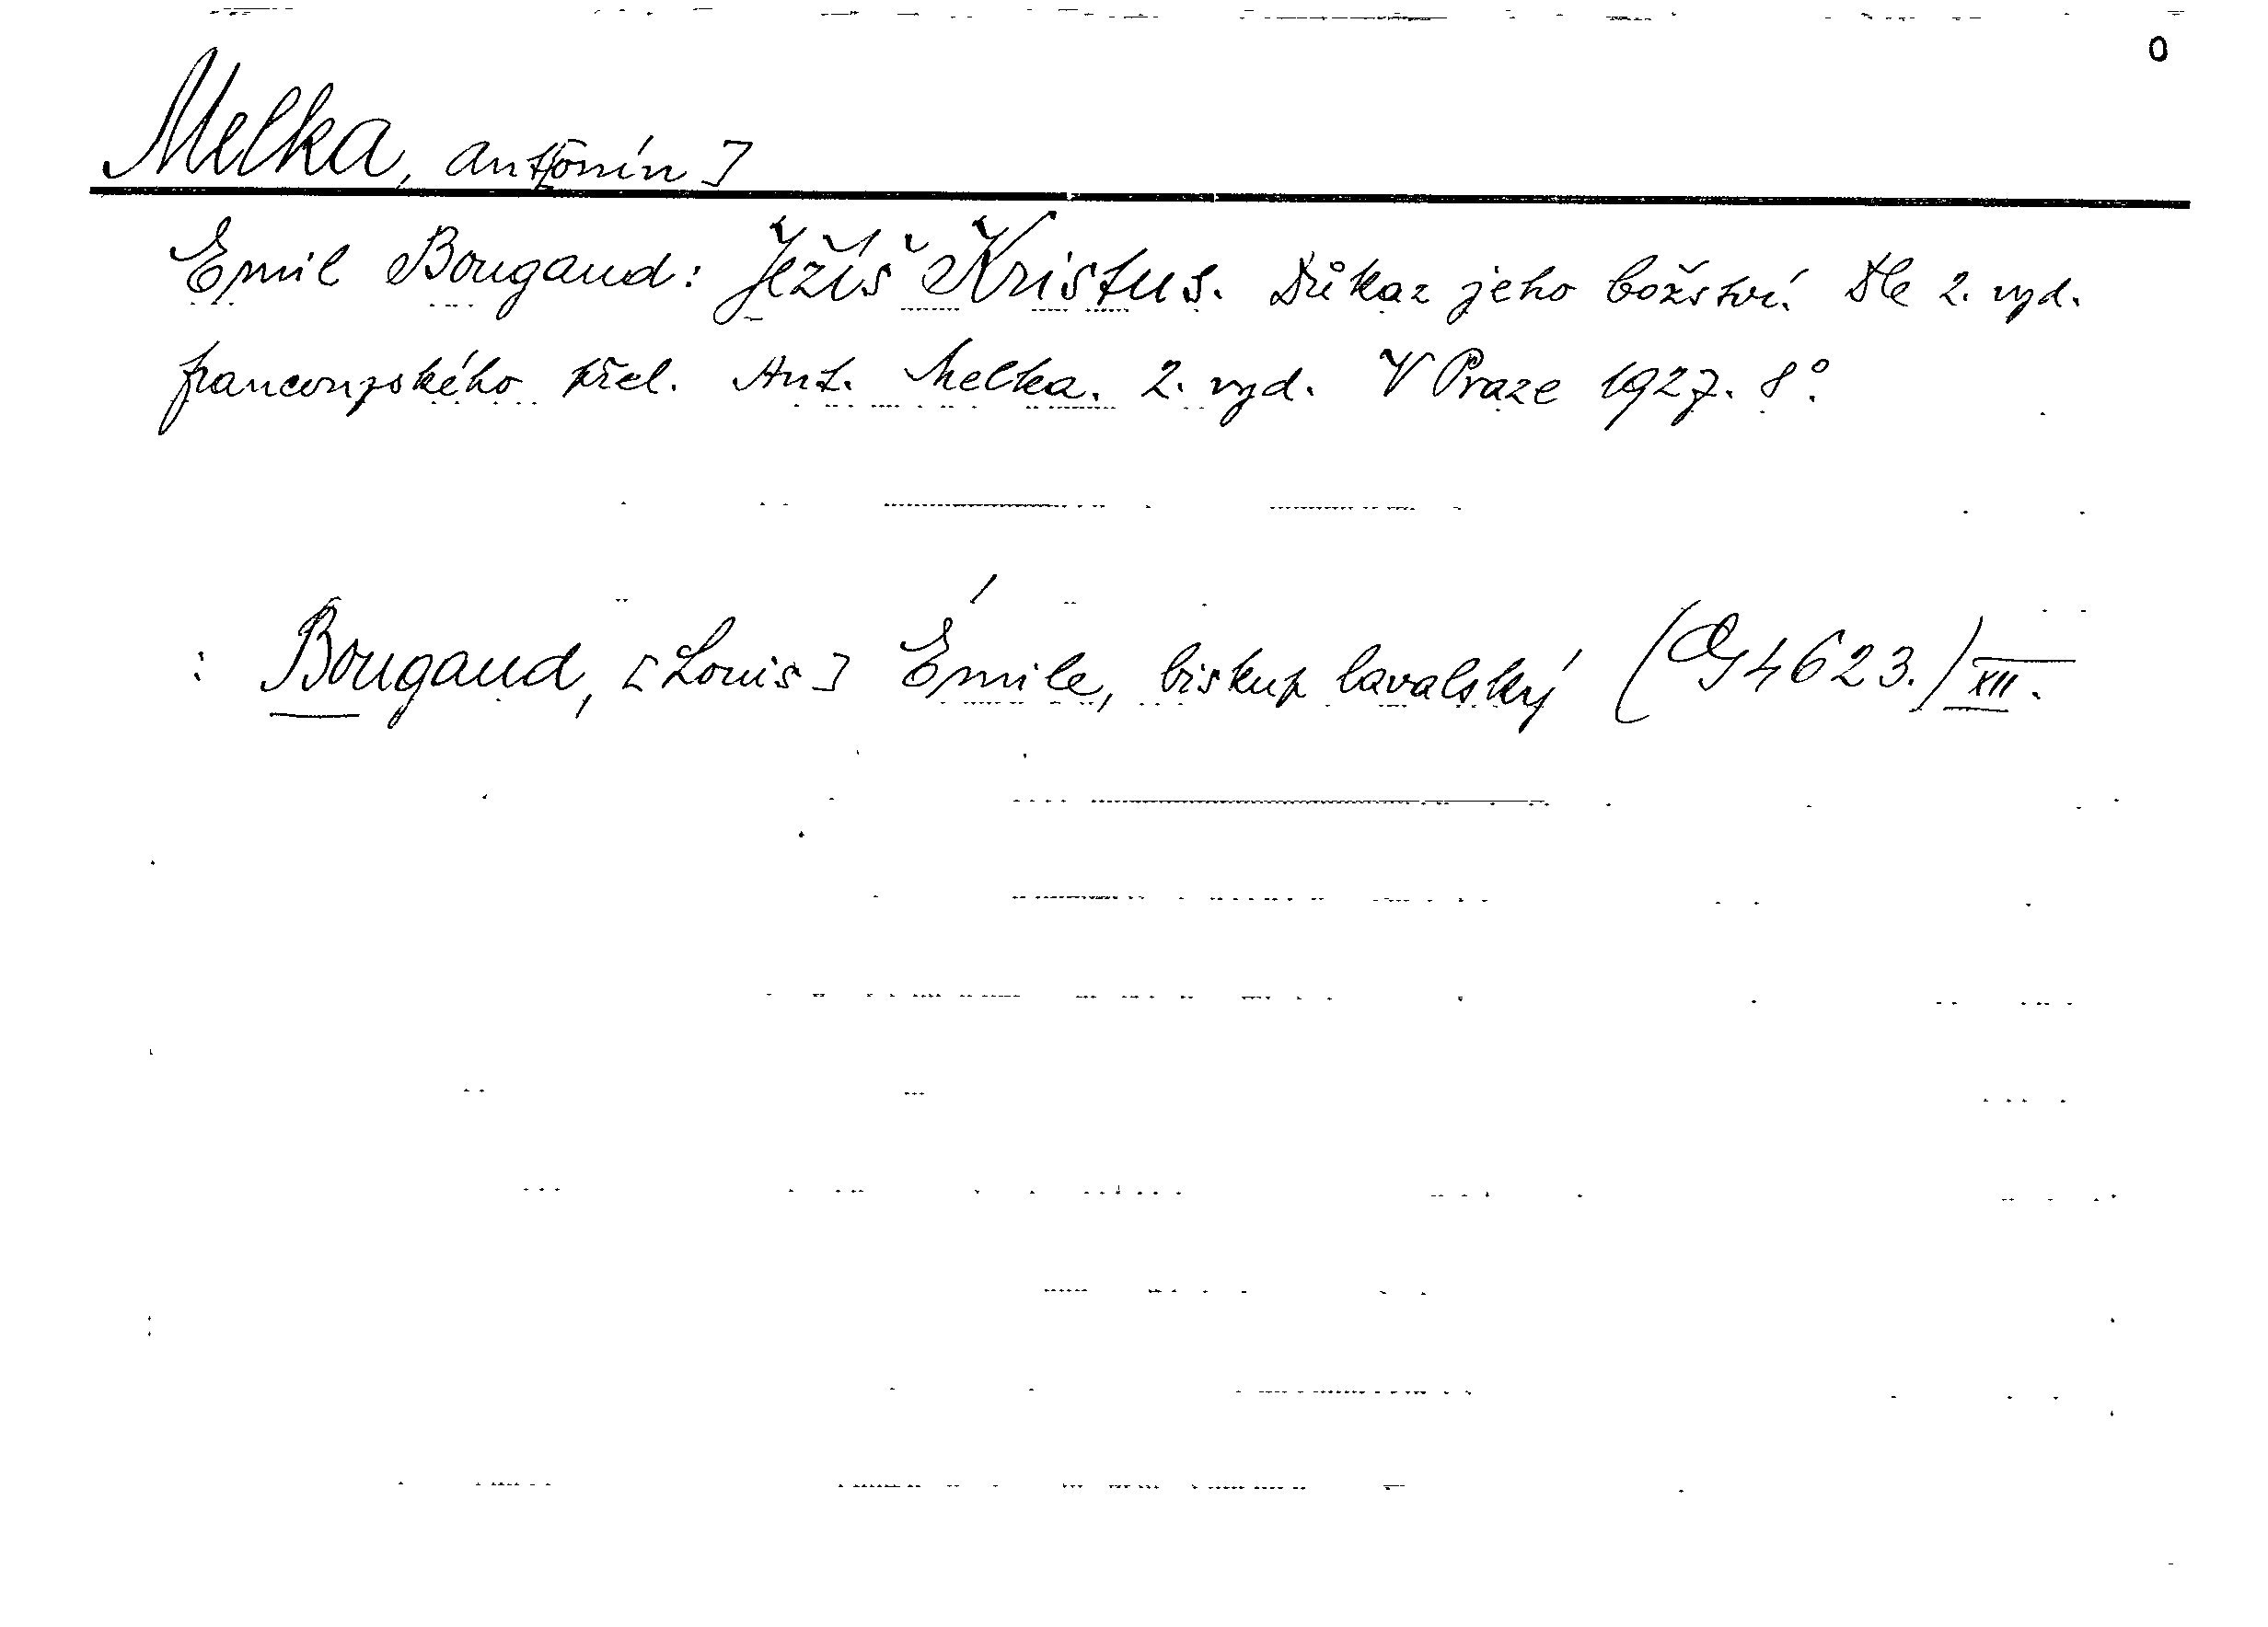 O
Melka, Ant[onín]
Emil Bougaud: Ježíš Kristus. Důkaz jeho božství. Dle 2. vyd.
francouzského přel. Ant. Melka. 2. vyd. V Praze 1927. 8°.
: Bougaud, [Louis] Émile, biskup lavalský ( 4623.) XII.